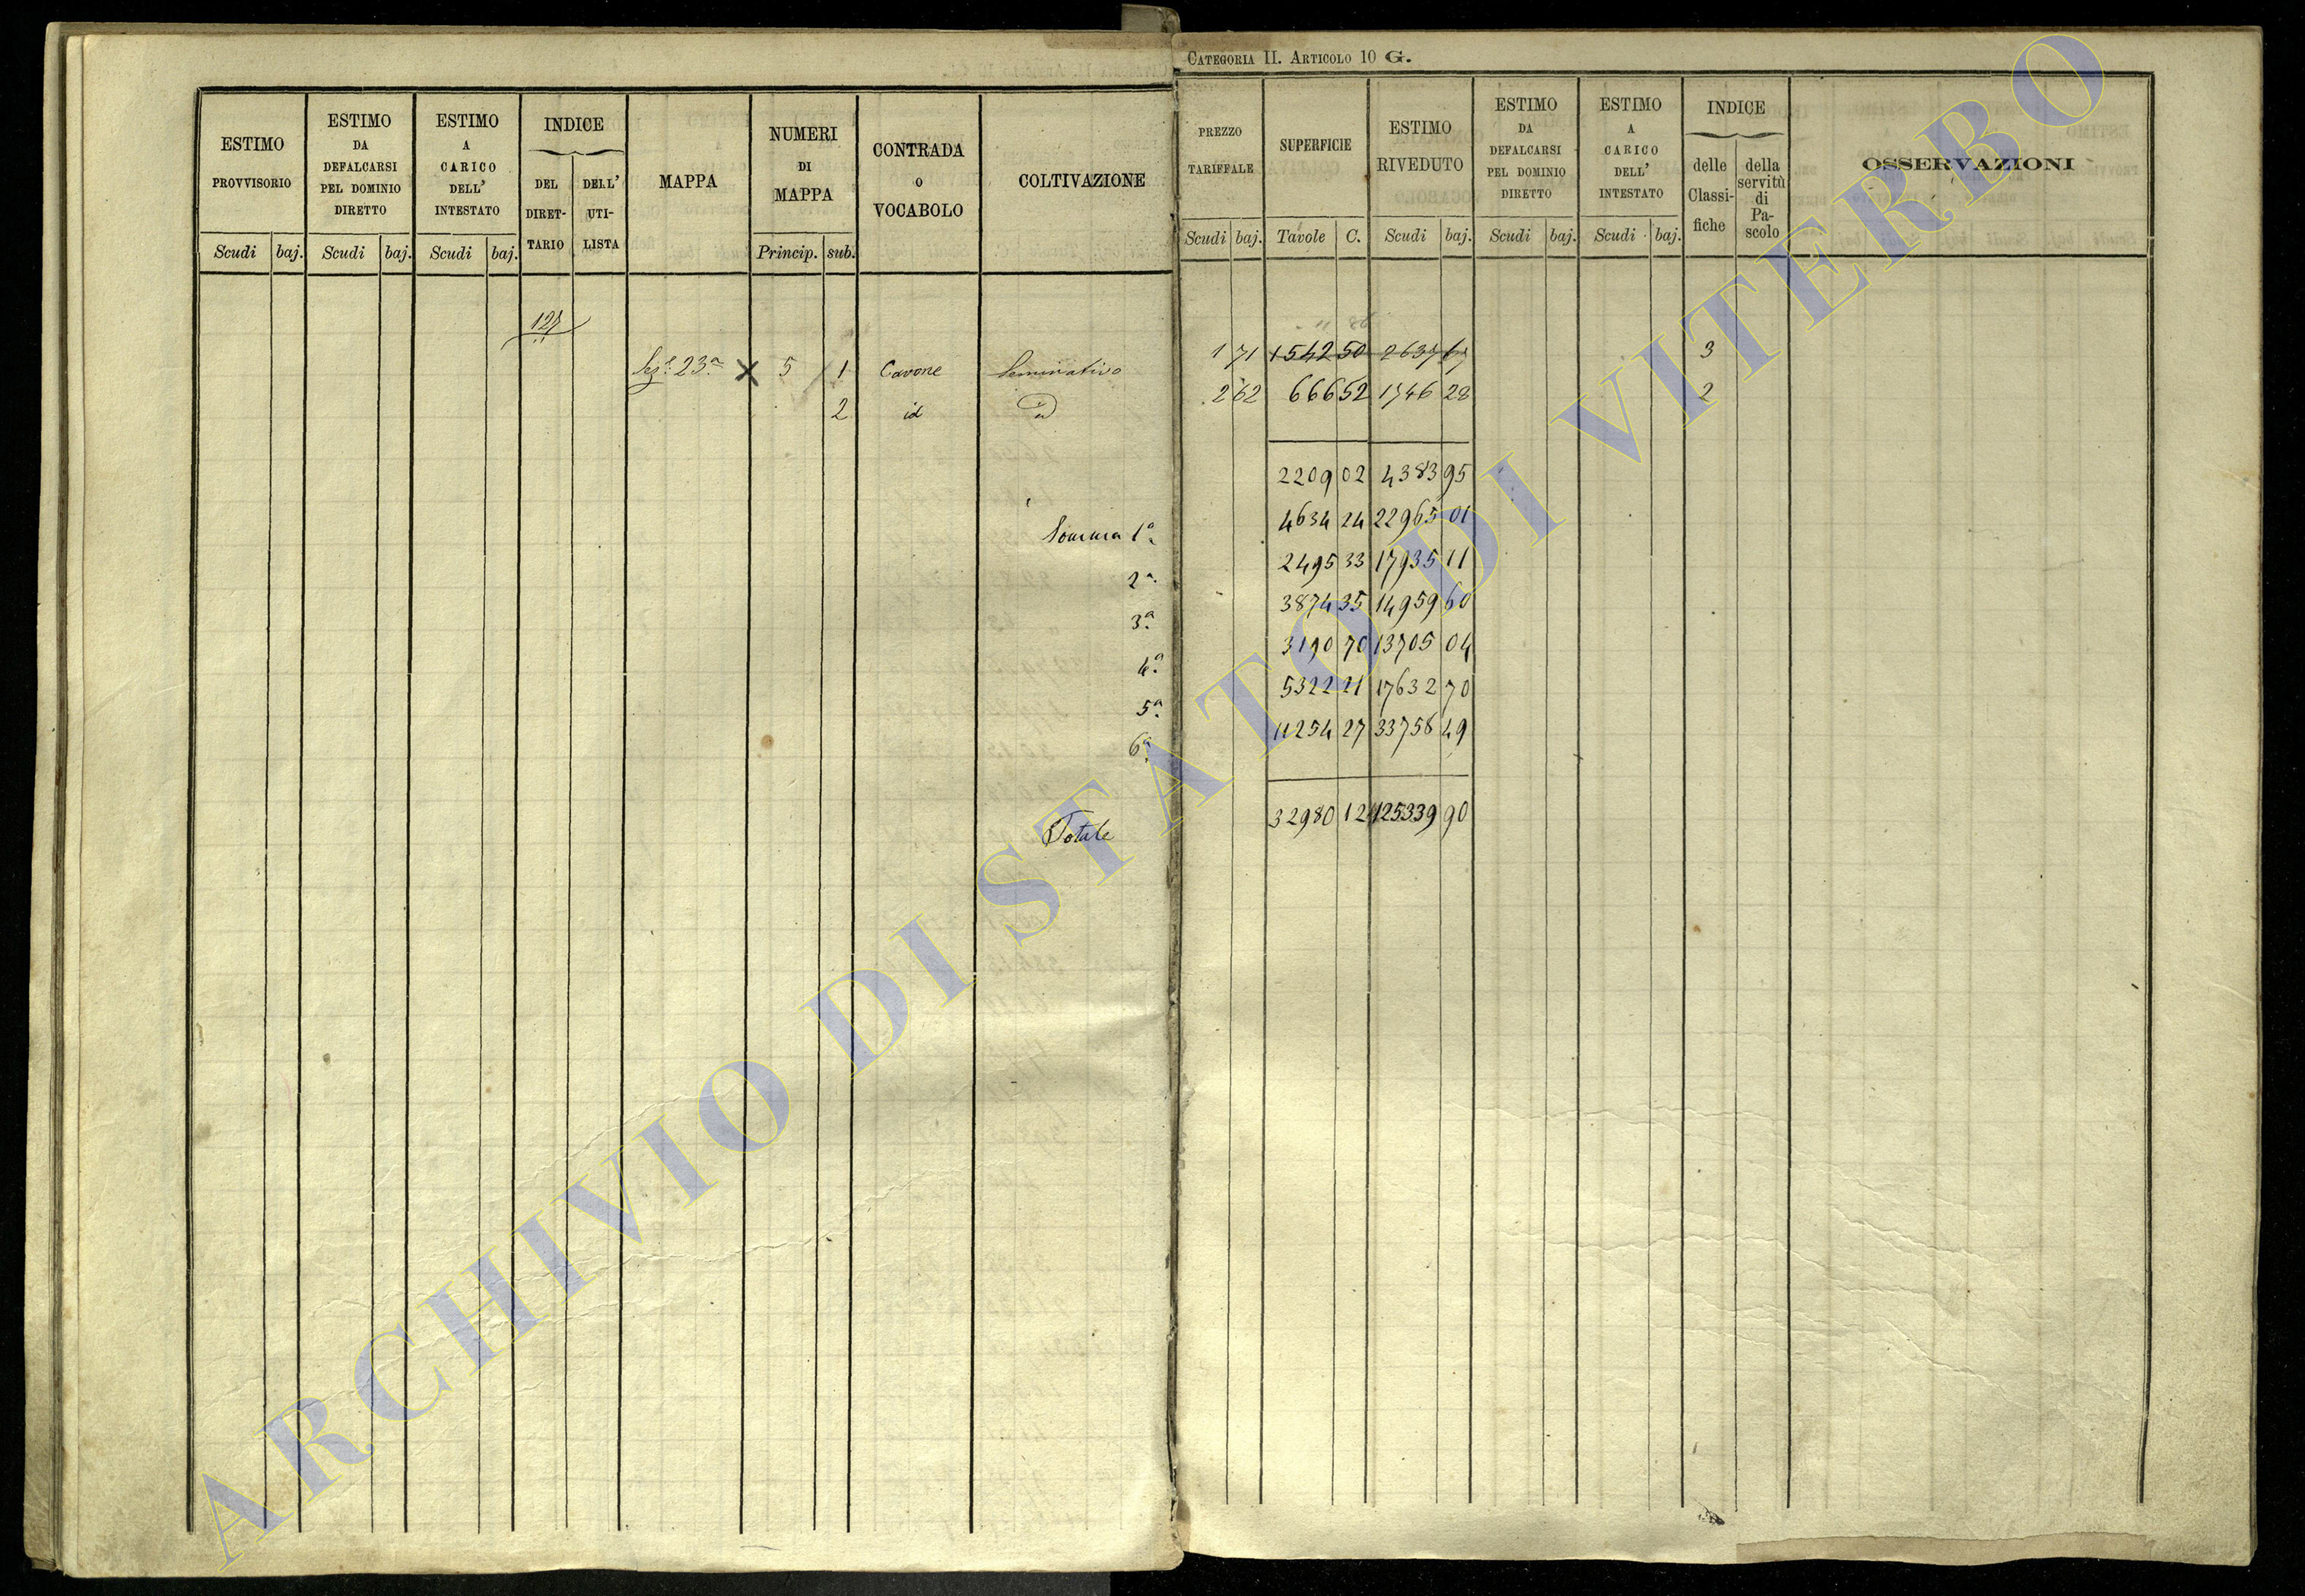 CATEGORIA II. ARTICOLO 10 G.
ESTIMO PROVVISORIO
Scudi baj.
ESTIMO DA DEFALCARSI PEL DOMINIO DIRETTO
Scudi baj.
ESTIMO A CARICO DELL' INTESTATO
Scudi baj.
INDICE
DEL DIRET-TARIO
DELL' UTI-LISTA
MAPPA
NUMERI DI MAPPA
Princip. sub.
CONTRADA O VOCABOLO
COLTIVAZIONE
PREZZO TARIFFALE
Scudi baj.
SUPERFICIE
Tavole C.
ESTIMO RIVEDUTO
Scudi baj.
ESTIMO DA DEFALCARSI PEL DOMINIO DIRETTO
Scudi baj.
ESTIMO A CARICO DELL' INTESTATO
Scudi baj.
INDICE
delle Classi-fiche
della servitù di Pa-scolo
OSSERVAZIONI
Sez.e 23a X 5 1 Cavone Seminativo 1 71 1542 50 2637 67 3
2 id id 2 62 666 52 1746 28 2
2209 02 4383 95
Somma 1a 4634 24 22965 01
2a 2495 33 17935 11
3a 3874 35 14959 60
4a 3190 70 13705 04
5a 5322 21 17632 70
6a 11254 27 33758 49
Totale 32980 12 125339 90
ARCHIVIO DI STATO DI VITERBO